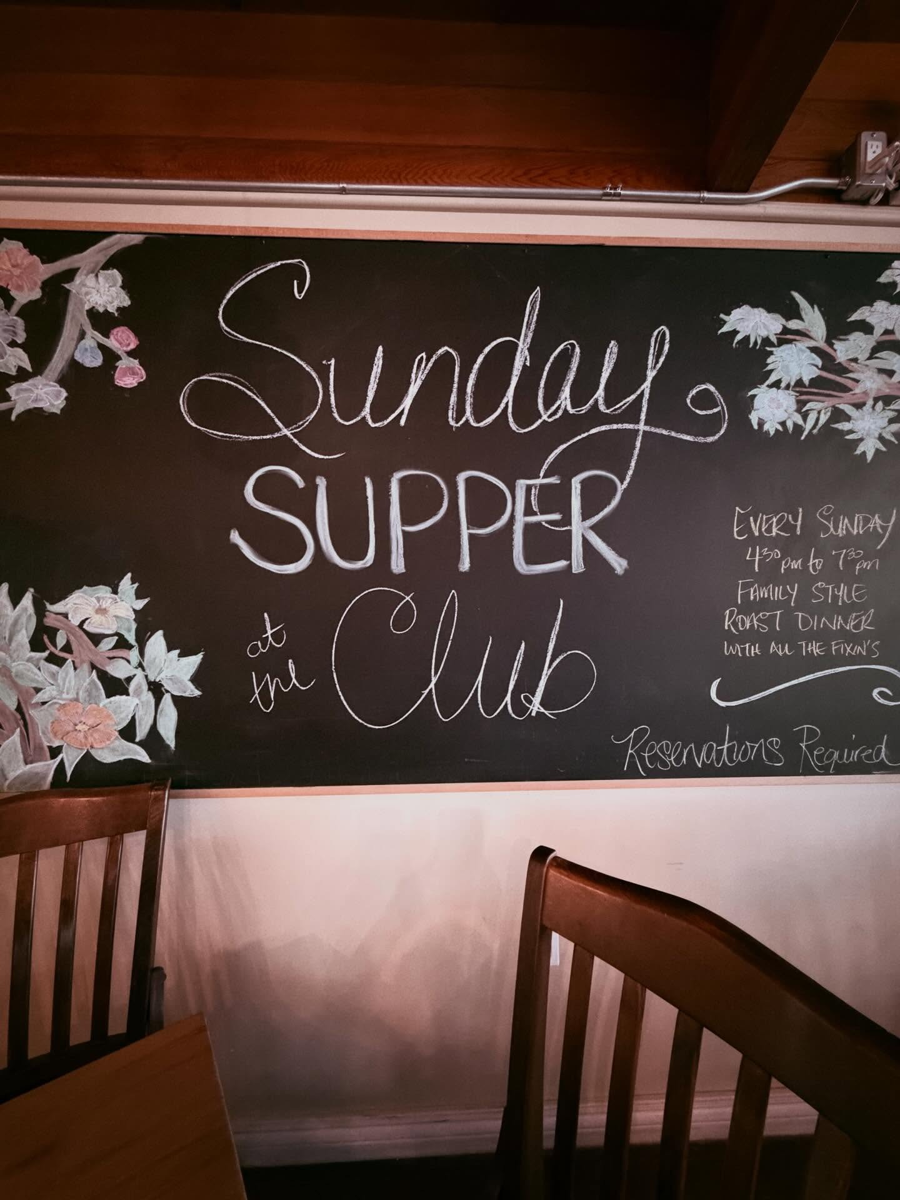 Sunday
SUPPER
at the Club
EVERY SUNDAY
4³⁰pm to 7³⁰pm
FAMILY STYLE
ROAST DINNER
WITH ALL THE FIXIN'S
Reservations Required